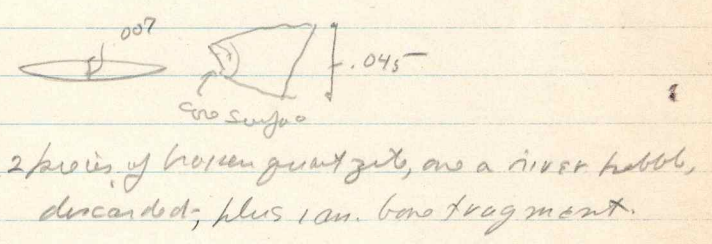 .007
.045
core surface
2 pieces of broken quartzite, one a river pebble,
discarded; plus 1 an. bone fragment.